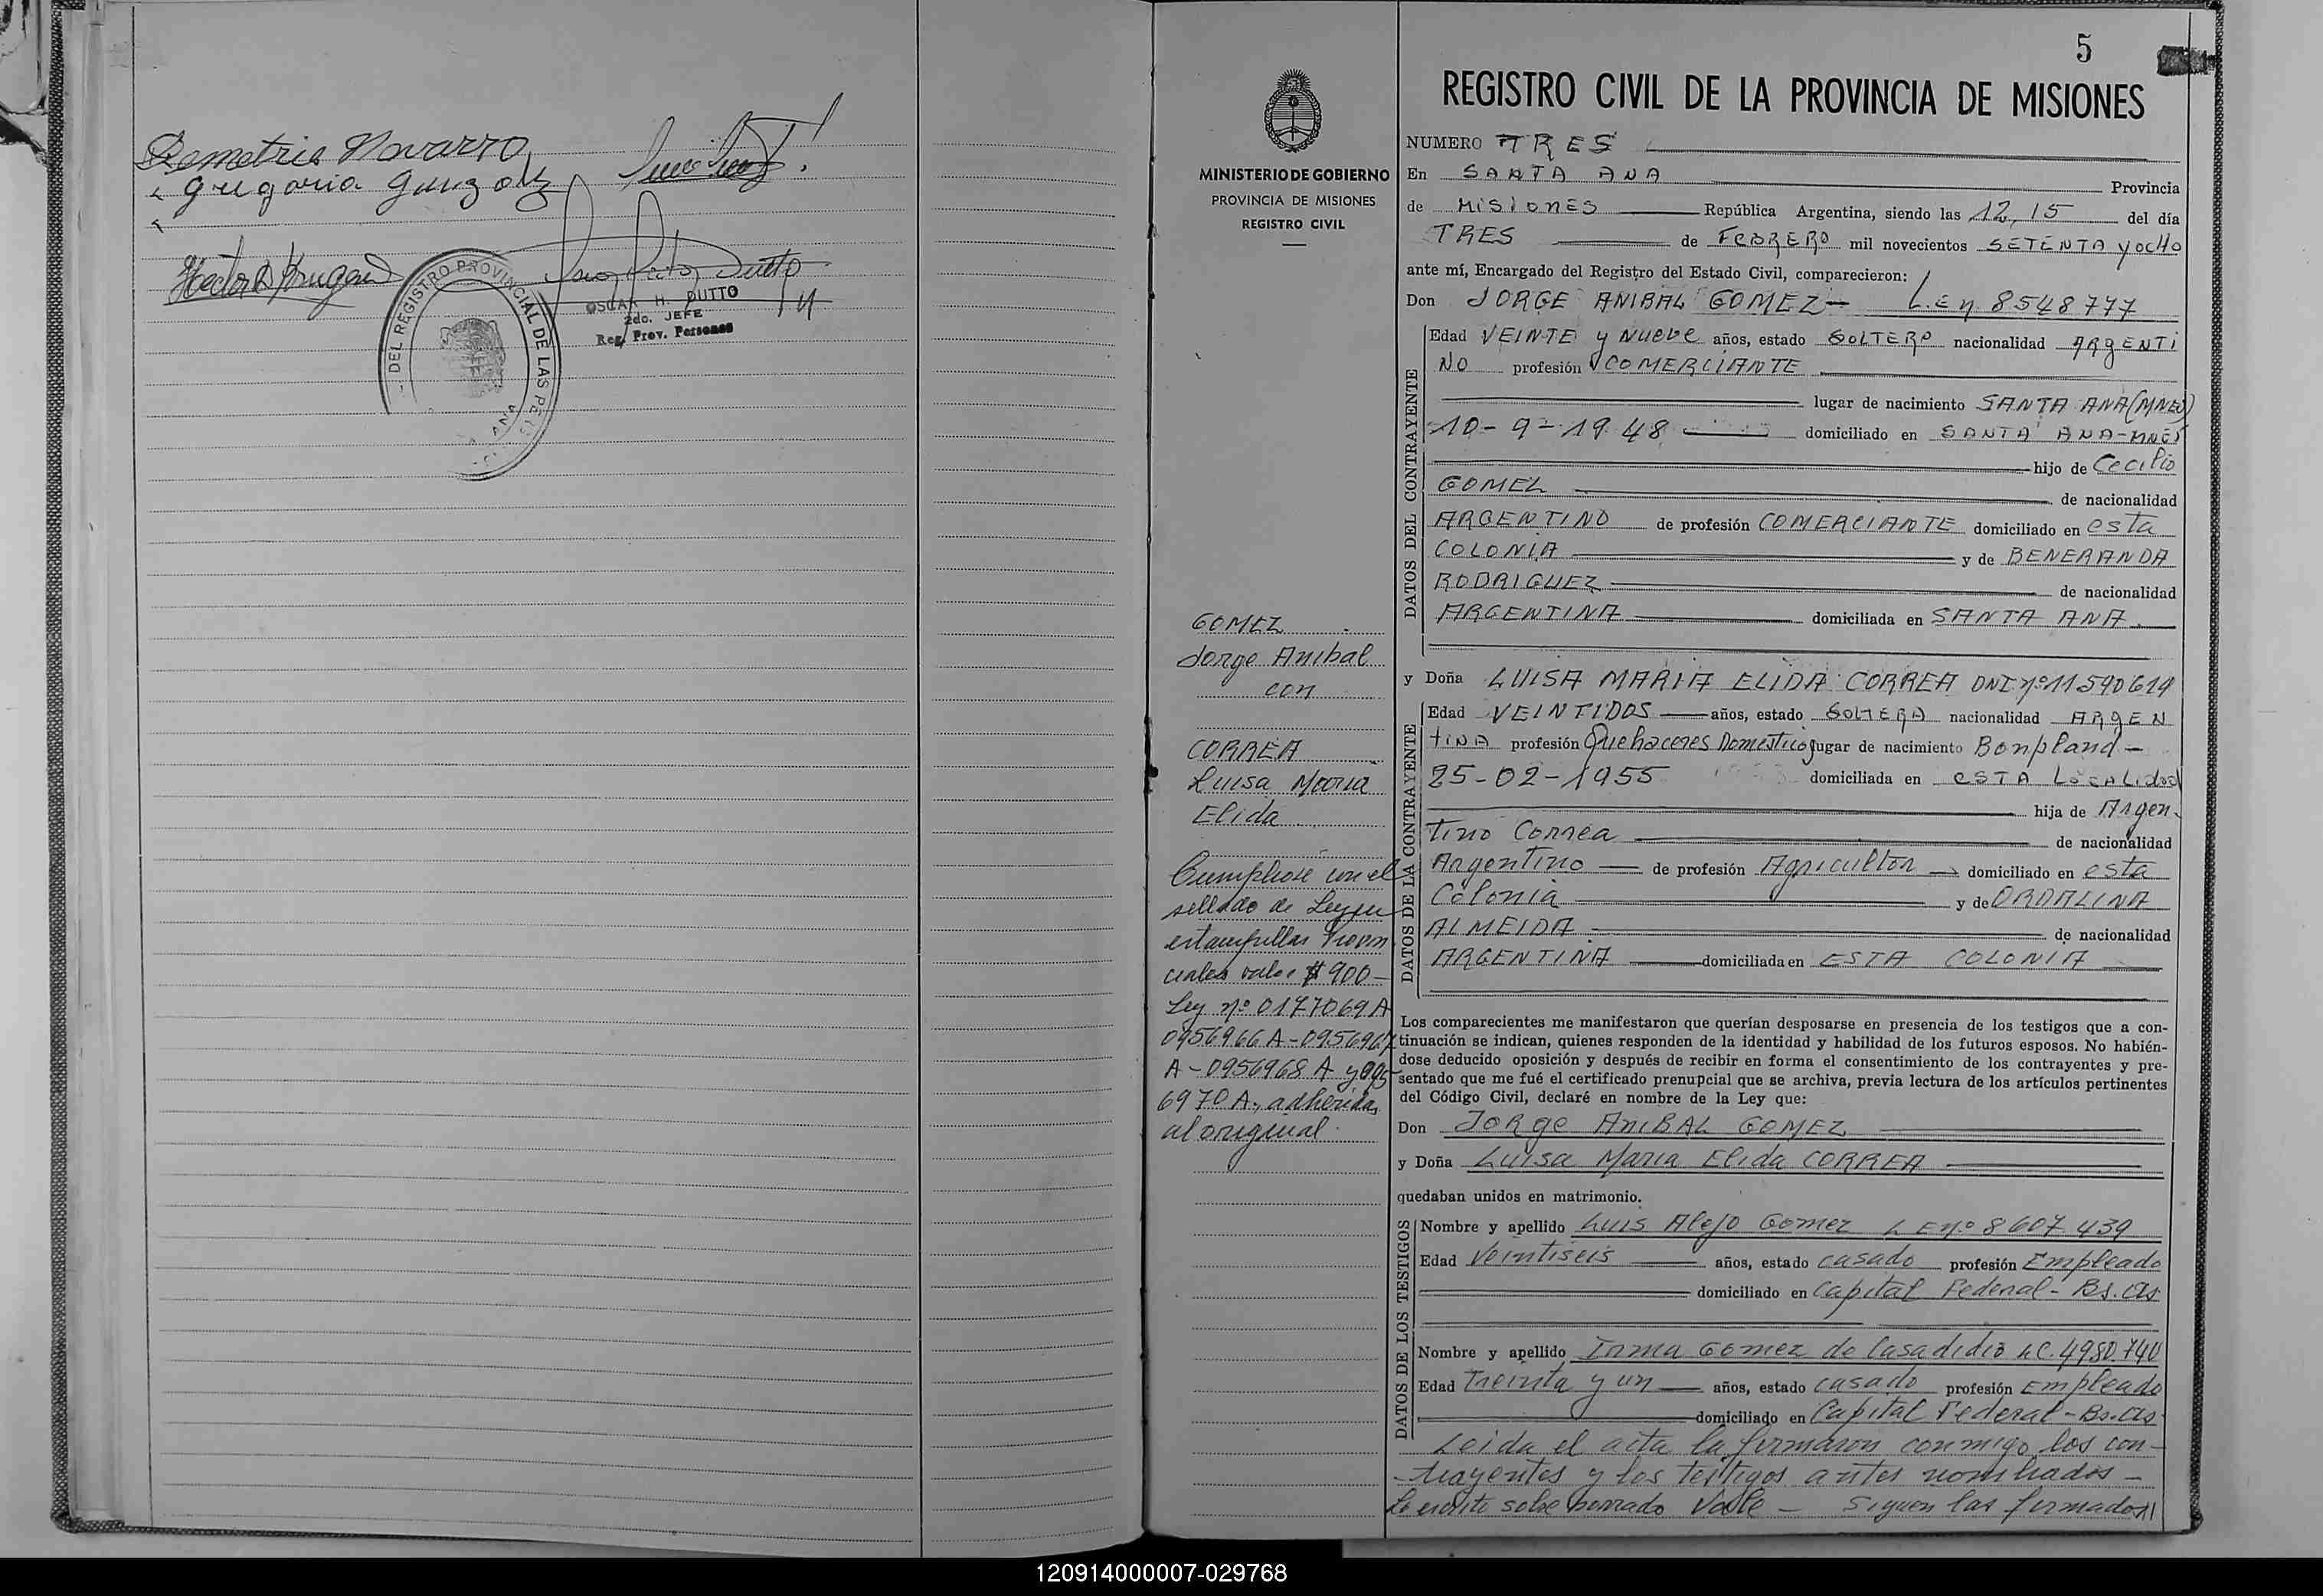 Demetria Navarro
Gregoria Gunzalz
Hector
DEL REGISTRO PROVINCIAL DE LAS PE
ANA
OSCAR H. DUTTO
2do. JEFE
Reg. Prov. Personas
5
REGISTRO CIVIL DE LA PROVINCIA DE MISIONES
MINISTERIO DE GOBIERNO
PROVINCIA DE MISIONES
REGISTRO CIVIL
NUMERO TRES
En SANTA ANA Provincia
de MISIONES República Argentina, siendo las 12,15 del día
TRES de FEBRERO mil novecientos SETENTA y OCHO
ante mí, Encargado del Registro del Estado Civil, comparecieron:
Don JORGE ANIBAL GOMEZ- L.E n 8548777
DATOS DEL CONTRAYENTE
Edad VEINTE y NUEVE años, estado SOLTERO nacionalidad ARGENTI
NO profesión COMERCIANTE
lugar de nacimiento SANTA ANA (MNES)
10-9-1948 domiciliado en SANTA ANA-MNES
hijo de Cecilio
GOMEZ de nacionalidad
ARGENTINO de profesión COMERCIANTE domiciliado en esta
COLONIA y de BENERANDA
RODRIGUEZ de nacionalidad
ARGENTINA domiciliada en SANTA ANA.
GOMEZ
Jorge Anibal
con
CORREA
Luisa Maria
Elida
Cumpliose con el
sellado de Ley en
estampillas Provin
ciales valor $ 900-
Ley nº 0177069 A
0956966 A-0956967
A-0956968 A y 095
6970 A., adheridas
al original.
y Doña LUISA MARIA ELIDA CORREA DNI nº 11590619
DATOS DE LA CONTRAYENTE
Edad VEINTIDOS años, estado SOLTERA nacionalidad ARGEN
TINA profesión Quehaceres Domesticos lugar de nacimiento Bonpland-
25-02-1955 domiciliada en ESTA LOCALidad
hija de Argen-
tino Correa de nacionalidad
Argentino de profesión Agricultor domiciliado en esta
Colonia y de ORDALINA
ALMEIDA de nacionalidad
ARGENTINA domiciliada en ESTA COLONIA
Los comparecientes me manifestaron que querían desposarse en presencia de los testigos que a con-
tinuación se indican, quienes responden de la identidad y habilidad de los futuros esposos. No habién-
dose deducido oposición y después de recibir en forma el consentimiento de los contrayentes y pre-
sentado que me fué el certificado prenupcial que se archiva, previa lectura de los artículos pertinentes
del Código Civil, declaré en nombre de la Ley que:
Don JORge ANIBAL GOMEZ
y Doña Luisa Maria Elida CORREA
quedaban unidos en matrimonio.
DATOS DE LOS TESTIGOS
Nombre y apellido Luis Alejo Gomez L E nº 8607439
Edad Veintiseis años, estado casado profesión Empleado
domiciliado en Capital Federal- Bs. As
Nombre y apellido Irma Gomez de Casadidio L C. 4980.740
Edad Treinta y un años, estado casado profesión Empleado
domiciliado en Capital Federal-Bs. As
Leida el acta la firmaron conmigo los con-
trayentes y los testigos antes nombrados-
Lo escrito sobre borrado Vale- Siguen las firmados//
120914000007-029768